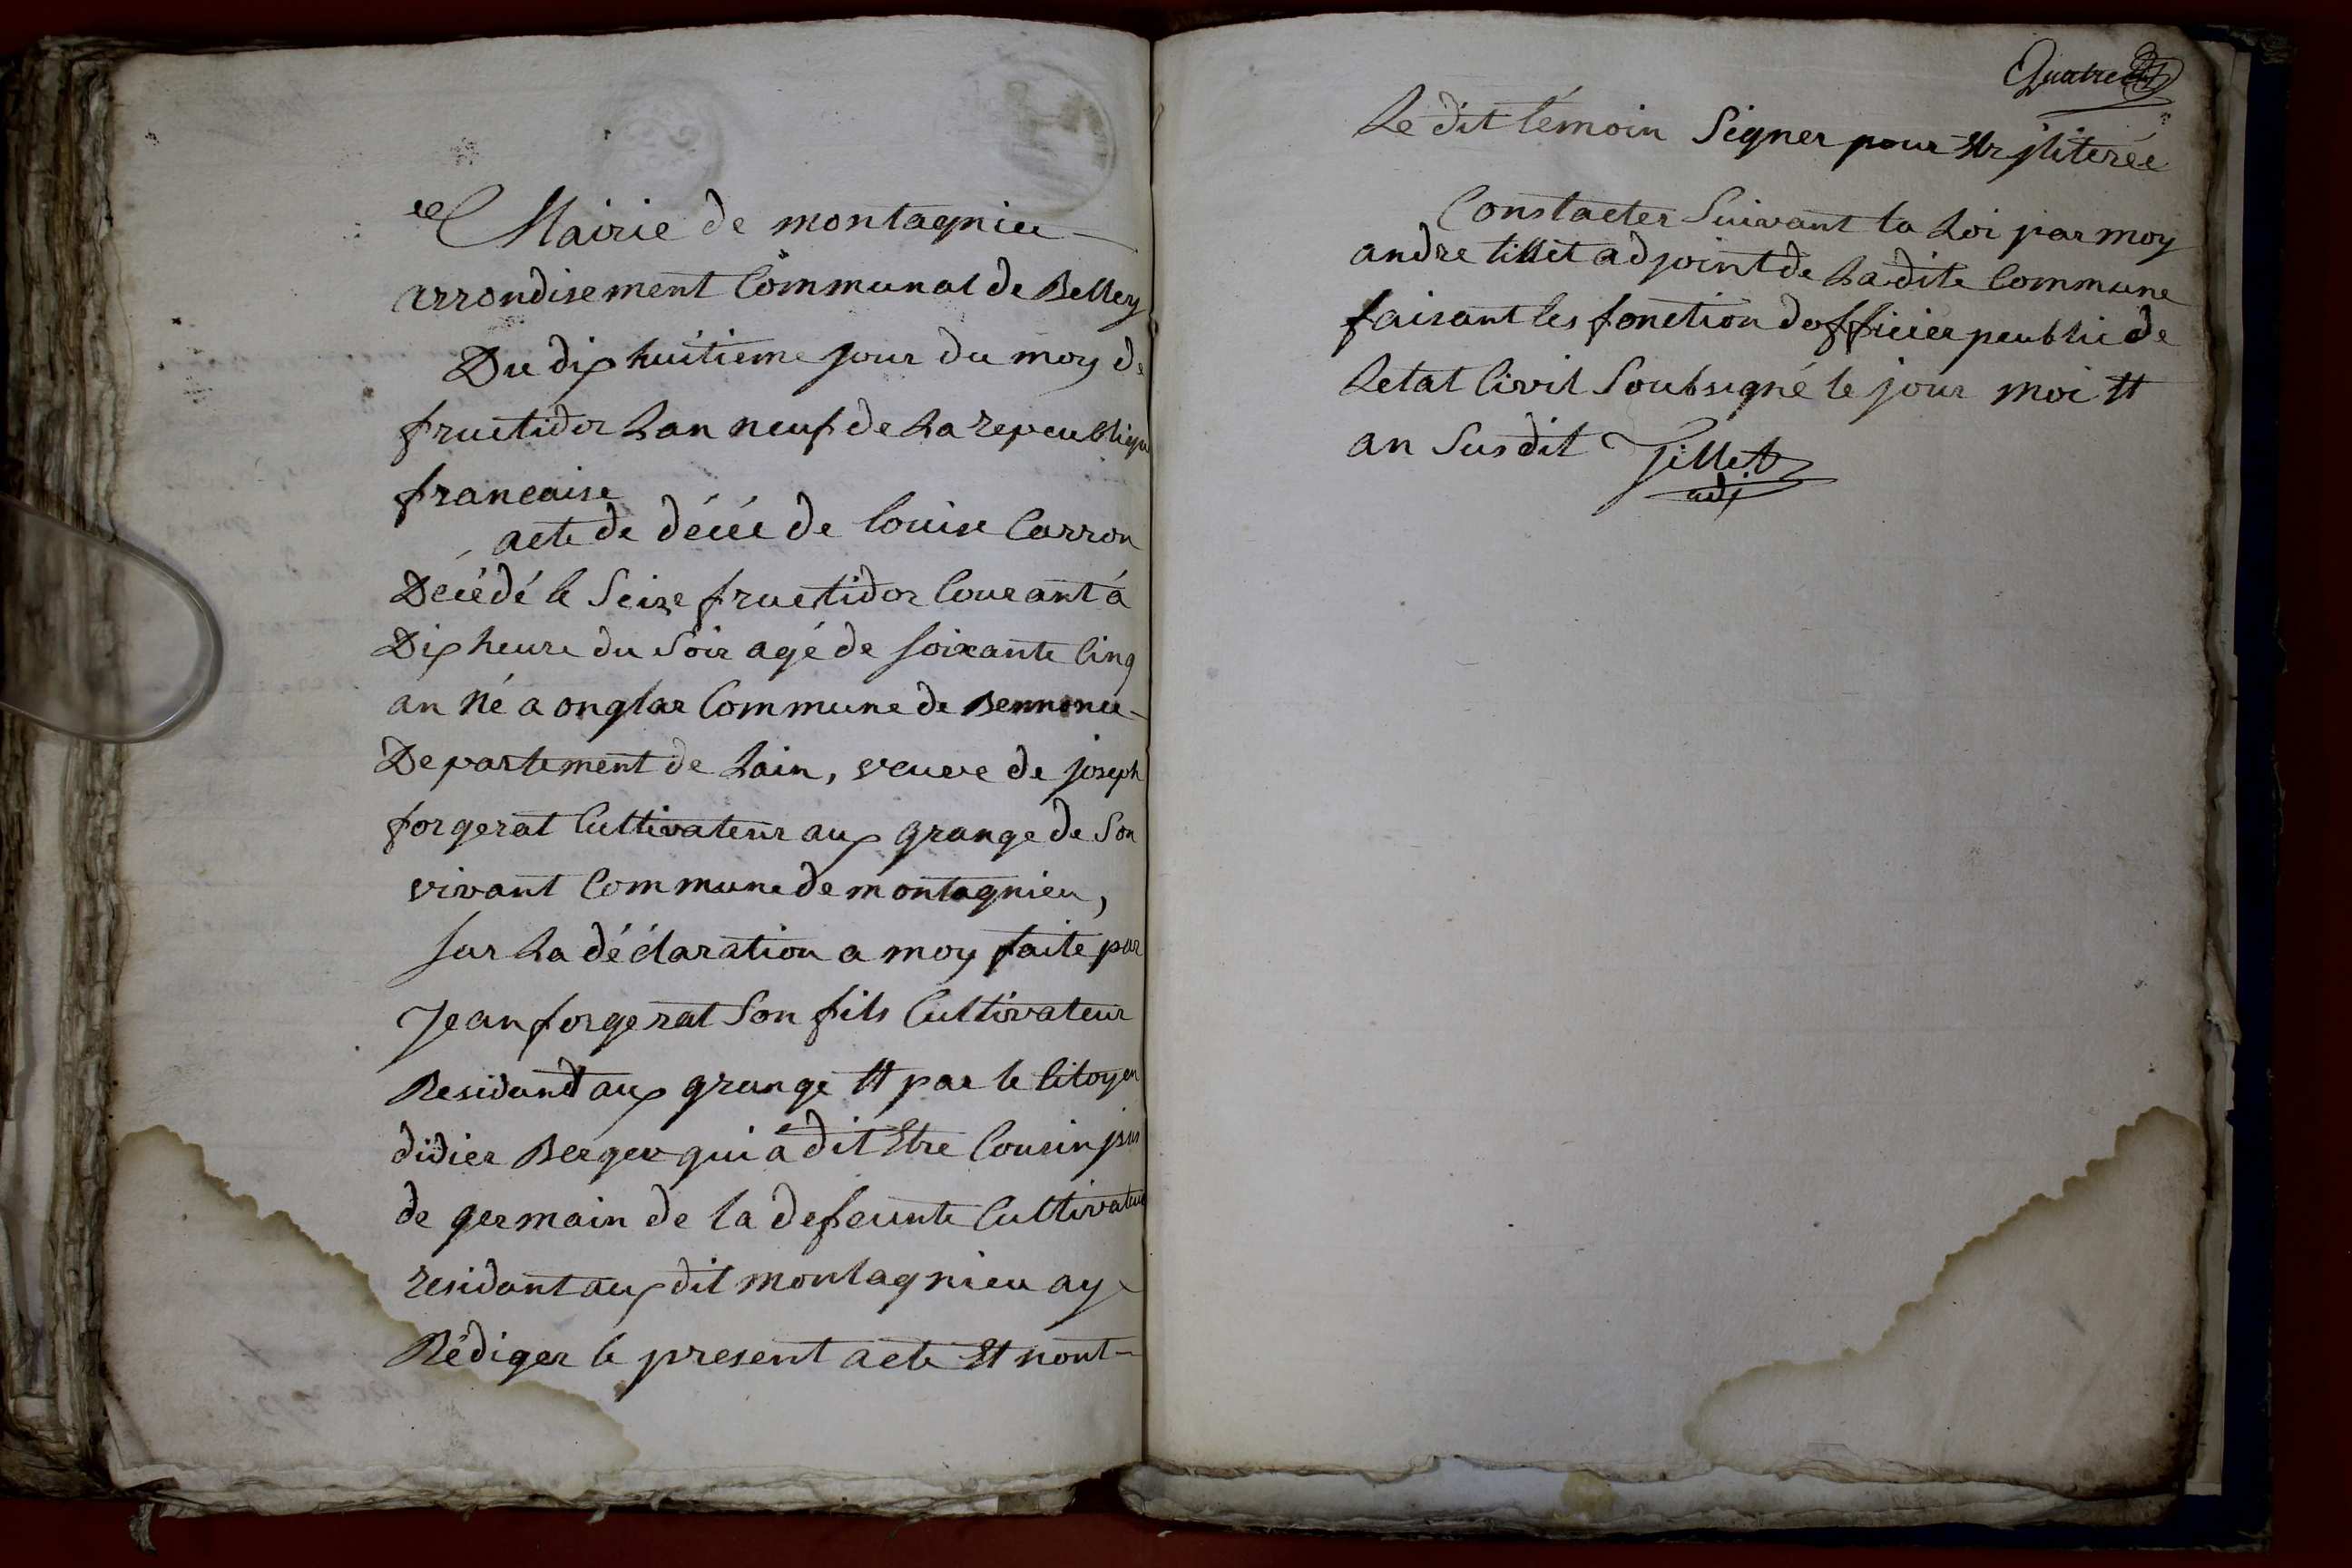 Mairie de montagnieu
arrondisement Communal de Belley
Du dix huitieme jour du moy de
fructidor Lan neuf de La repeublique
francaise
acte de décée de louise Carron
Decédé le Seize fructidor Courant á
Dix heure du Soir agé de soixante Cinq
an Né a onglas Commune de Bennonce
Departement de Lain, veuve de joseph
forgerat Cultivateur aux grange de Son
vivant Commune de montagnieu,
sur La déclaration a moy faite par
Jean forgerat Son fils Cultivateur
Residant aux grange Et par le Citoyen
didier Berger qui á dit Etre Cousin
de germain de la defeunte Cultivateur
residant aux dit montagnieu ay
Rédiger le present acte Et nont
Quatre
Le dit témoin Signer pour Etre jliterée
Constacter Suivant la Loi par moy
andre tillet adjoint de La dite Commune
faisant les fonction dofficier peublic de
Letat Civil Soubsigné le jour moi Et
an Susdit Tillet
adj